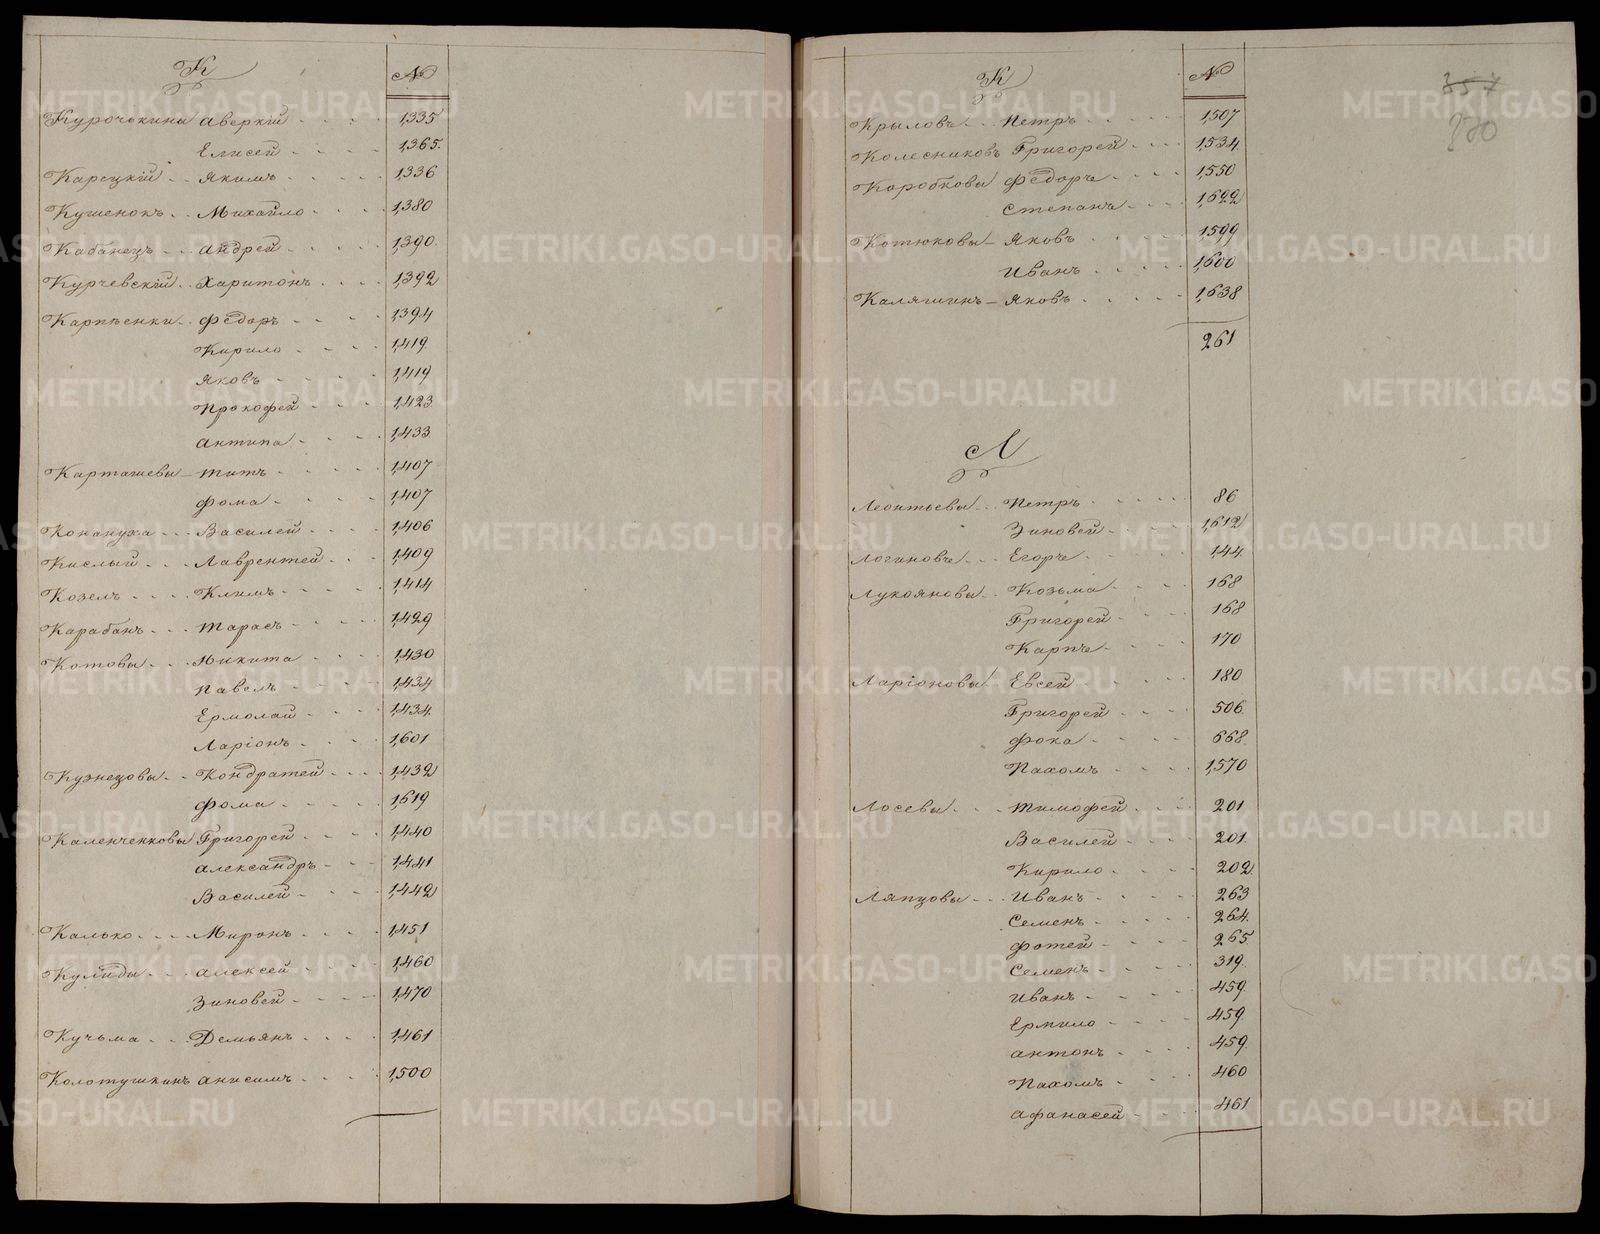 К №
Курочькины Аверкій 1,335
Елисей 1,365.
Карецкій Якимъ 1,336
Кушенокъ Михайло 1,380
Кабанецъ Андрей 1,390.
Курчевскій Харитонъ 1,392
Карпѣенки Ѳедоръ 1,394
Кирило 1,419.
Яковъ 1,419
Прокофей 1,423.
Антипа 1,433.
Карташевы Титъ 1,407
Фома 1,407
Конануха Василей 1,406
Кислый Лаврентей 1,409
Козелъ Климъ 1,414
Карабанъ Тарасъ 1,429
Котовы Никита 1,430
Павелъ 1,434
Ермолай 1,434.
Ларіонъ 1,601
Кузнецовы Кондратей 1,432
Фома 1,619
Каленченковы Григорей 1,440
Александръ 1,441
Василей 1,442
Калько Миронъ 1,451
Кулиды Алексей 1,460
Зиновей 1,470
Кучьма Демьянъ 1,461
Колотушкинъ Анисимъ 1,500
К №
357
Крыловъ Петръ 1,507
Колесниковъ Григорей 1,534.
Коробковы Ѳедоръ 1,550
Степанъ 1,622
Котюковы Яковъ 1,599
Иванъ 1,600
Калягинъ Яковъ 1,638
261
Л
Леонтьевы Петръ 86
Зиновей 1,612
Логиновъ Егоръ 144.
Лукояновы Козьма 168
Григорей 168
Карпъ 170
Ларіоновы Евсей 180
Григорей 506.
Фока 668.
Пахомъ 1,570
Лосевы Тимофей 201
Василей 201.
Кирило 202.
Ляпцовы Иванъ 263
Семенъ 264.
Фотей 265.
Семенъ 319.
Иванъ 459.
Ермило 459.
Антонъ 459.
Пахомъ 460
Афанасей 461